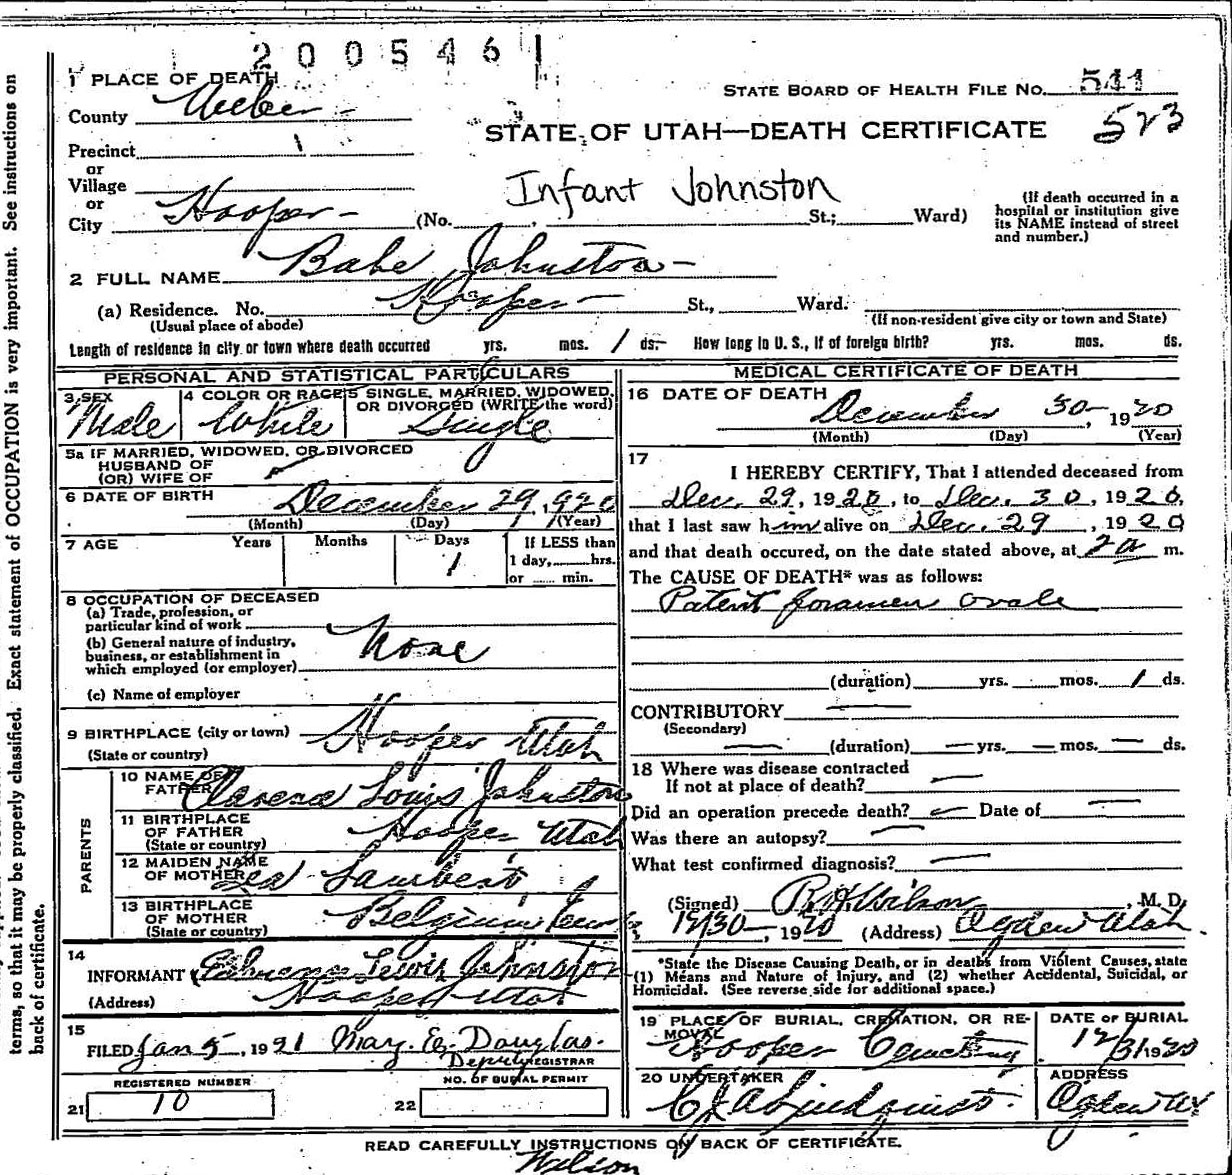 200546 1
1 PLACE OF DEATH
County Weber
STATE BOARD OF HEALTH FILE No. 541
523
STATE OF UTAH—DEATH CERTIFICATE
Precinct 1
or
Village
or
City Hooper (No. , St.; Ward)
Infant Johnston
(If death occurred in a hospital or institution give its NAME instead of street and number.)
2 FULL NAME Babe Johnston
(a) Residence. No. Hooper St., Ward.
(Usual place of abode)
(If non-resident give city or town and State)
Length of residence in city or town where death occurred yrs. mos. 1 ds. How long in U. S., if of foreign birth? yrs. mos. ds.
PERSONAL AND STATISTICAL PARTICULARS
3 SEX Male
4 COLOR OR RACE White
5 SINGLE, MARRIED, WIDOWED, OR DIVORCED (WRITE the word) Single
5a IF MARRIED, WIDOWED, OR DIVORCED
HUSBAND OF
(OR) WIFE OF
6 DATE OF BIRTH December 29, 1920
(Month) (Day) (Year)
7 AGE Years Months Days 1
If LESS than
1 day, hrs.
or min.
8 OCCUPATION OF DECEASED
(a) Trade, profession, or
particular kind of work
(b) General nature of industry,
business, or establishment in
which employed (or employer)
None
(c) Name of employer
9 BIRTHPLACE (city or town)
(State or country)
Hooper Utah
PARENTS
10 NAME OF FATHER Clarence Louis Johnston
11 BIRTHPLACE OF FATHER (State or country) Hooper Utah
12 MAIDEN NAME OF MOTHER Lea Lambert
13 BIRTHPLACE OF MOTHER (State or country) Belgium
14
INFORMANT Lewis Johnston
(Address) Hooper Utah
15
FILED Jan 5, 1921 May. E. Douglas.
Deputy REGISTRAR
REGISTERED NUMBER
21 10
NO. OF BURIAL PERMIT
22
MEDICAL CERTIFICATE OF DEATH
16 DATE OF DEATH
December 30, 1920
(Month) (Day) (Year)
17
I HEREBY CERTIFY, That I attended deceased from
Dec. 29, 1920, to Dec. 30, 1920,
that I last saw him alive on Dec. 29, 1920
and that death occured, on the date stated above, at 2a m.
The CAUSE OF DEATH* was as follows:
Patent foramen ovale
(duration) yrs. mos. 1 ds.
CONTRIBUTORY
(Secondary)
(duration) — yrs. — mos. — ds.
18 Where was disease contracted
If not at place of death? —
Did an operation precede death? — Date of —
Was there an autopsy? —
What test confirmed diagnosis? —
(Signed) R. H. Wilson, M. D.
12/30, 1920 (Address) Ogden Utah.
*State the Disease Causing Death, or in deaths from Violent Causes, state
(1) Means and Nature of Injury, and (2) whether Accidental, Suicidal, or
Homicidal. (See reverse side for additional space.)
19 PLACE OF BURIAL, CREMATION, OR REMOVAL
Hooper Cemetery
DATE OF BURIAL
12/31 1920
20 UNDERTAKER
C J A Lindquist.
ADDRESS
Ogden Ut
READ CAREFULLY INSTRUCTIONS ON BACK OF CERTIFICATE.
Wilson
terms, so that it may be properly classified. Exact statement of OCCUPATION is very important. See instructions on
back of certificate.